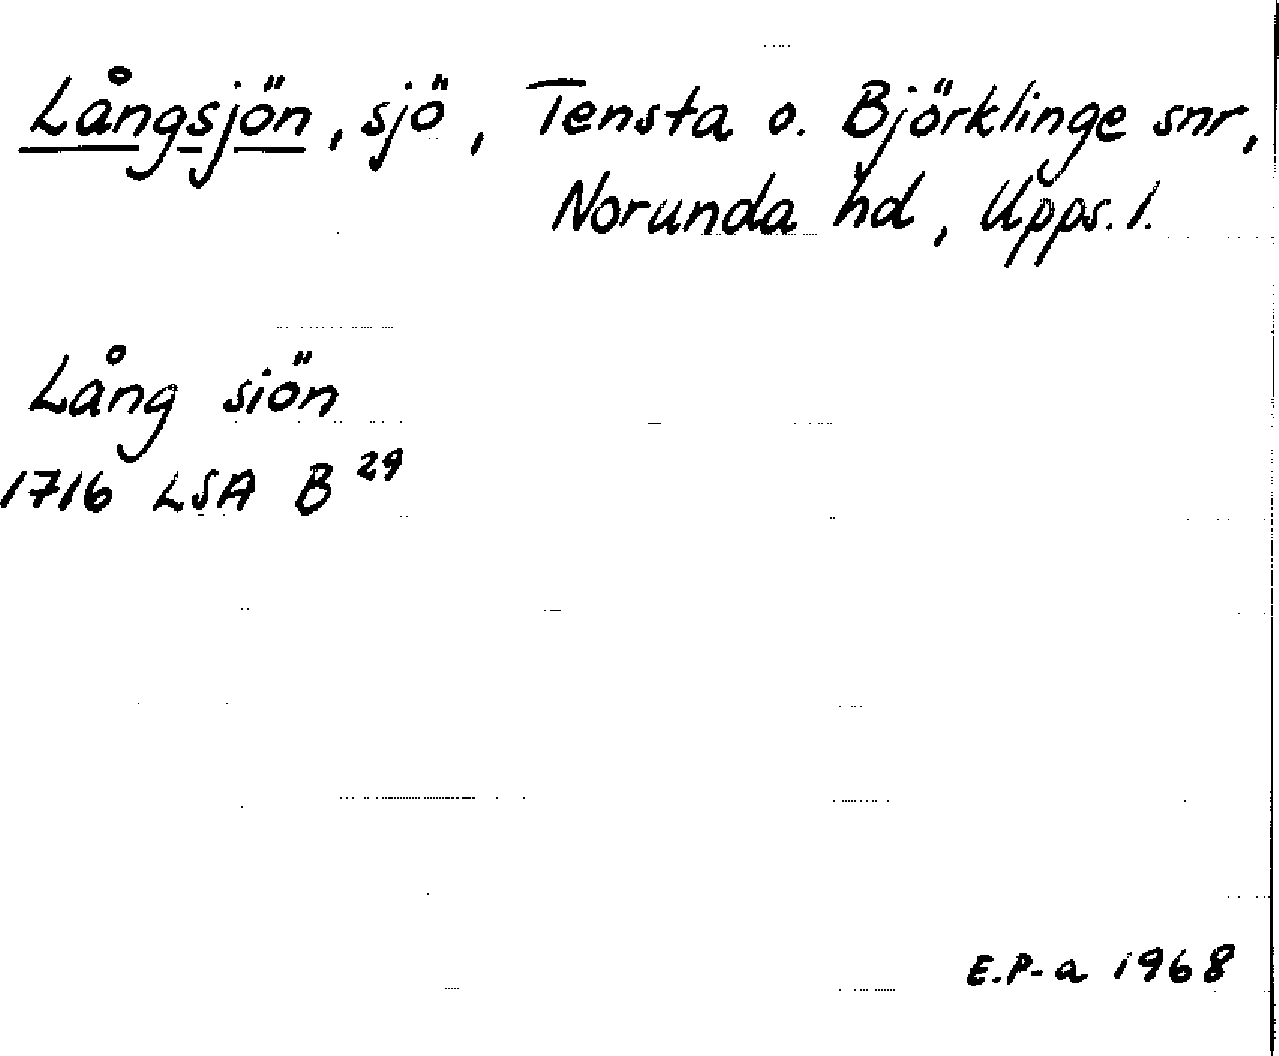 Långsjön, sjö, Tensta o. Björklinge snr,
Norunda hd, Upps. l.
Lång siön
1716 LSA B 29
E.P-a 1968